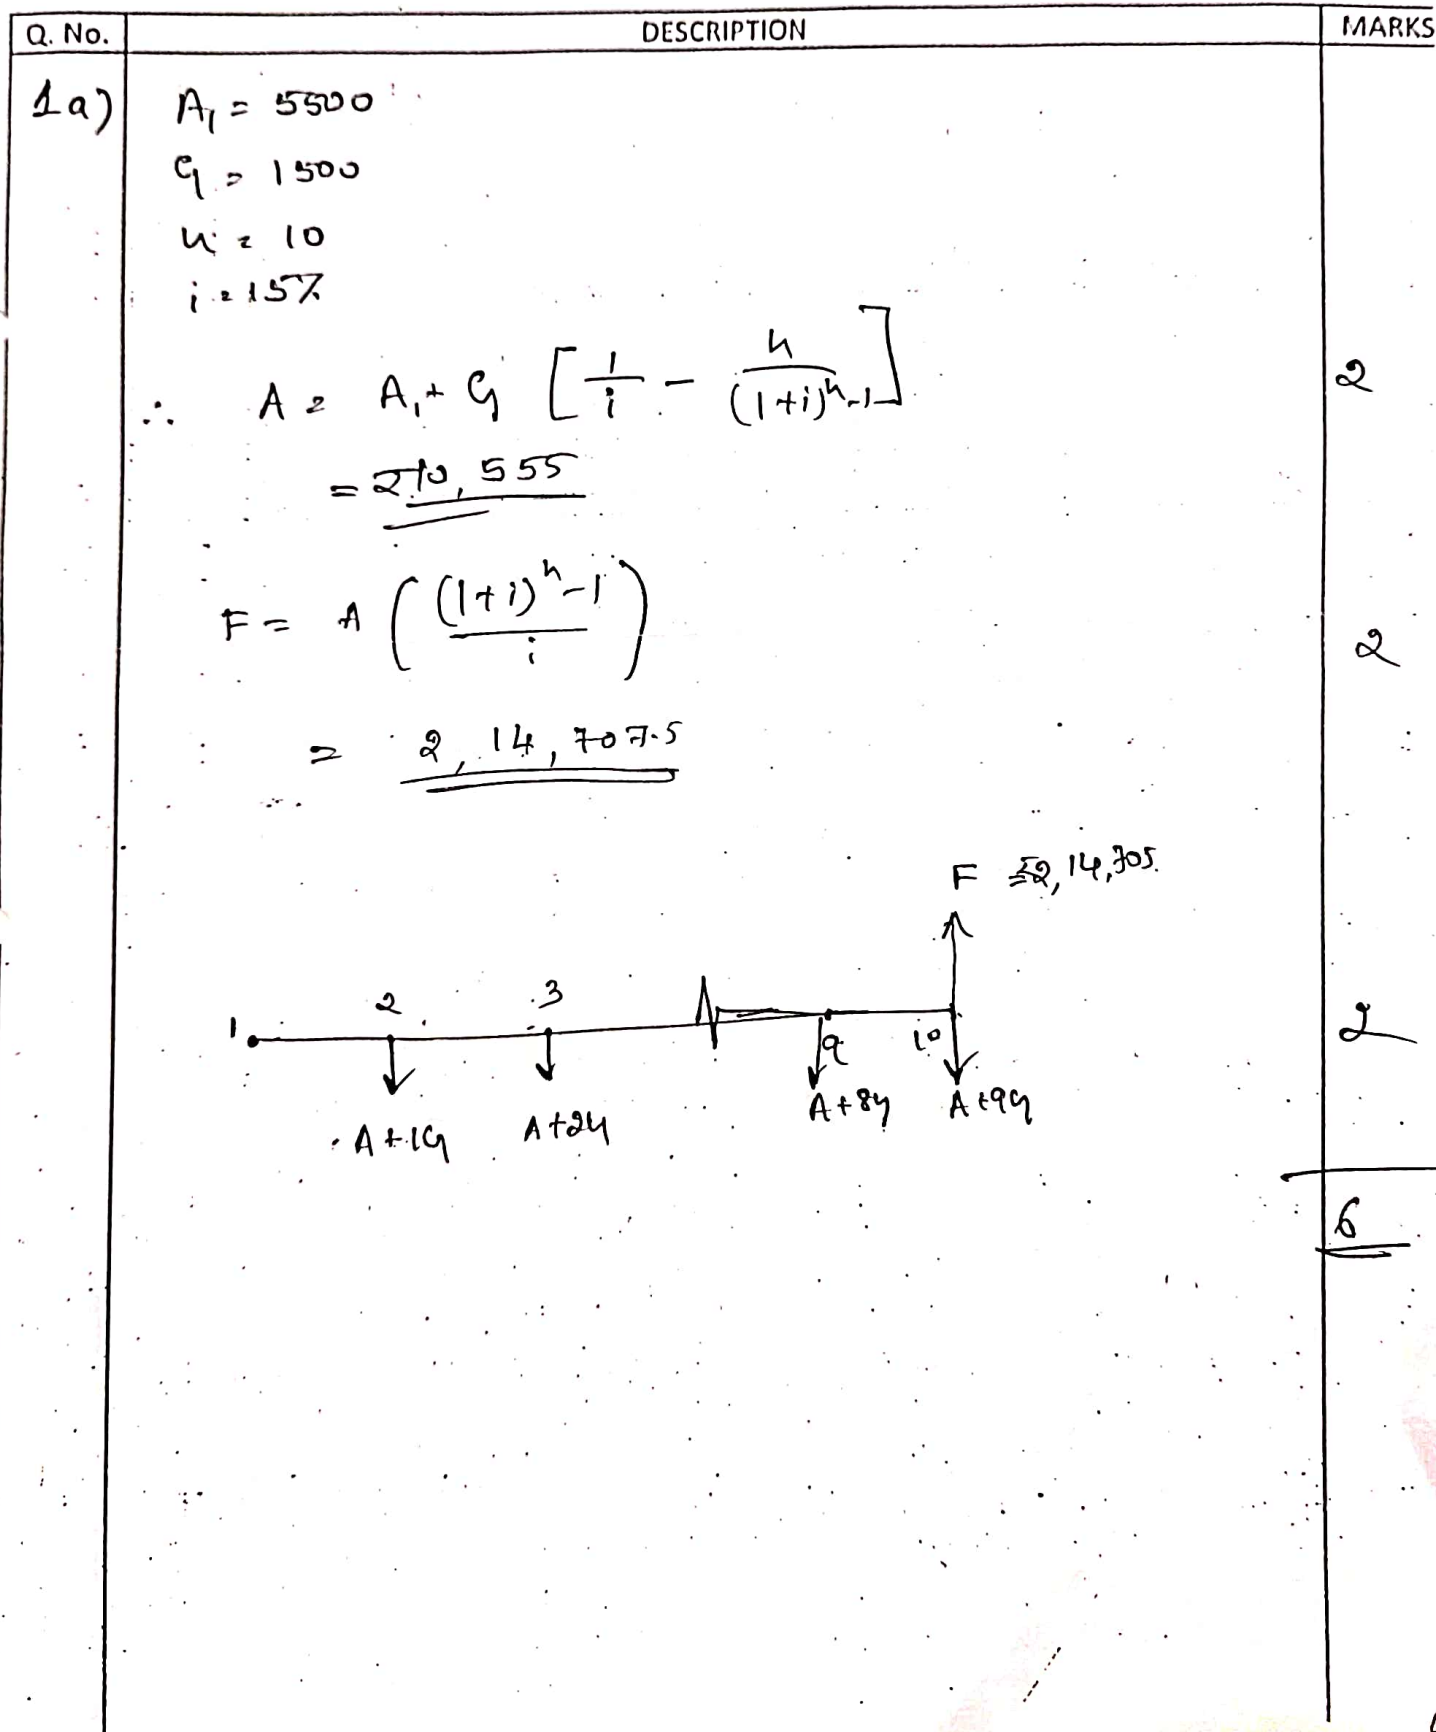 Q. No. DESCRIPTION MARKS
1a) A₁ = 5500
G = 1500
n = 10
i = 15%
∴ A = A₁ + G [ 1/i - n/((1+i)ⁿ-1) ] 2
= 10,555
F = A ( ((1+i)ⁿ-1)/i ) 2
= 2,14,707.5
F = 2,14,705.
1 2 3 9 10 2
A+1G A+2G A+8G A+9G
6